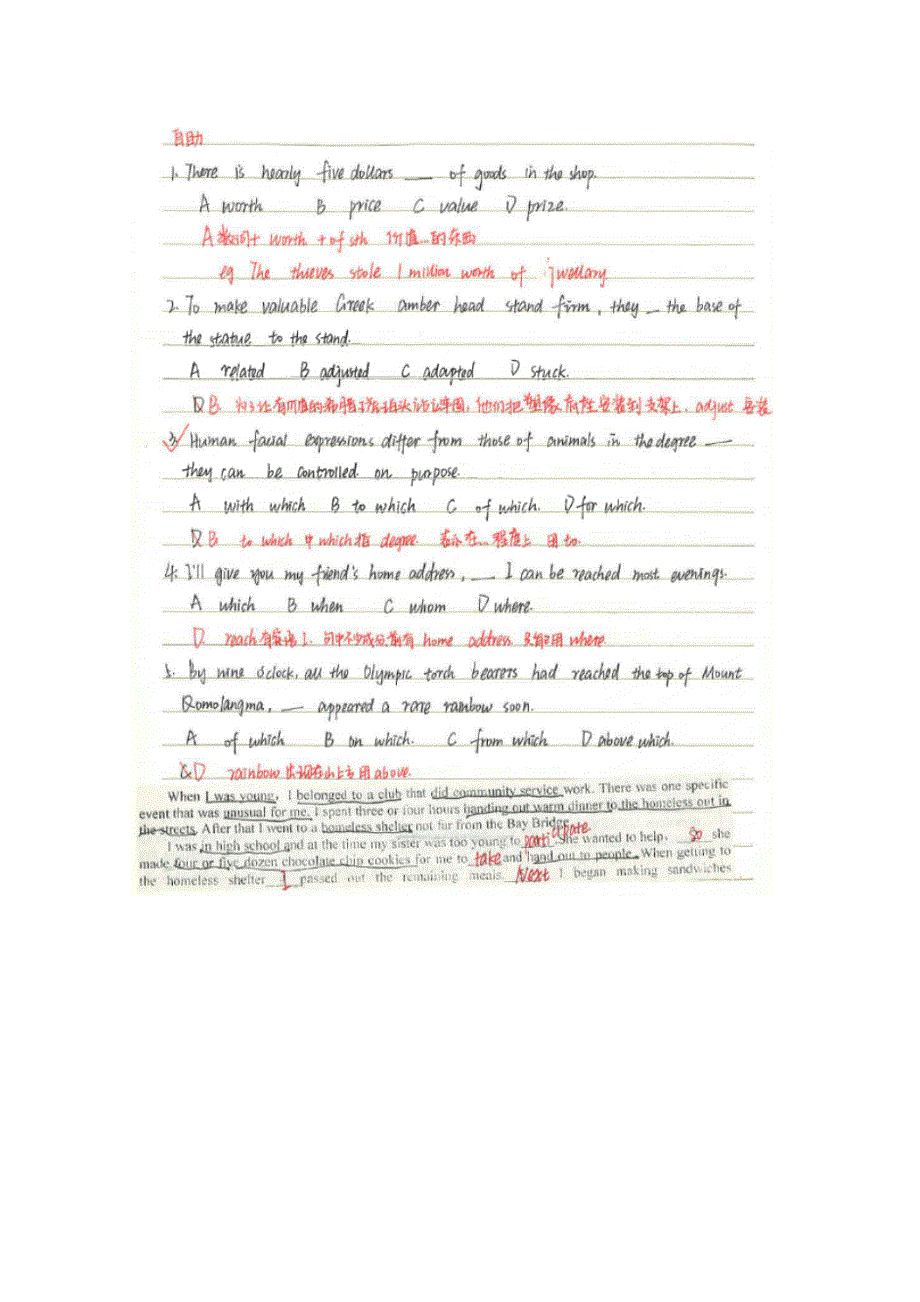 自助
1. There is hearly five dollars __ of goods in the shop.
A worth B price C value D prize.
A 数词+ worth + of sth 价值…的东西
eg The thieves stole 1 million worth of jwellary
2. To make valuable Greek amber head stand firm, they _ the base of
the statue to the stand.
A related B adjusted C adapted D stuck.
B 为了让有价值的希腊 头 牢固,他们把塑像底座安装到支架上. adjust 安装
3. Human facial expressions differ from those of animals in the degree __
they can be controlled on purpose.
A with which B to which C of which. D for which.
B to which 中which指 degree. 表示在…程度上 用to.
4. I'll give you my friend's home address, __ I can be reached most evenings.
A which B when C whom D where.
D. reach 有宾语 I. 句中不少成分 前有 home address 只能用 where
5. By nine o'clock, all the Olympic torch bearers had reached the top of Mount
Qomolangma, __ appeared a rare rainbow soon.
A of which B on which. C from which D above which.
D rainbow 出现在山上方用above.
When I was young, I belonged to a club that did community service work. There was one specific
event that was unusual for me. I spent three or four hours handing out warm dinner to the homeless out in
the streets. After that I went to a homeless shelter not far from the Bay Bridge.
I was in high school and at the time my sister was too young to participate. She wanted to help, so she
made four or five dozen chocolate chip cookies for me to take and hand out to people. When getting to
the homeless shelter I passed out the remaining meals. Next I began making sandwiches